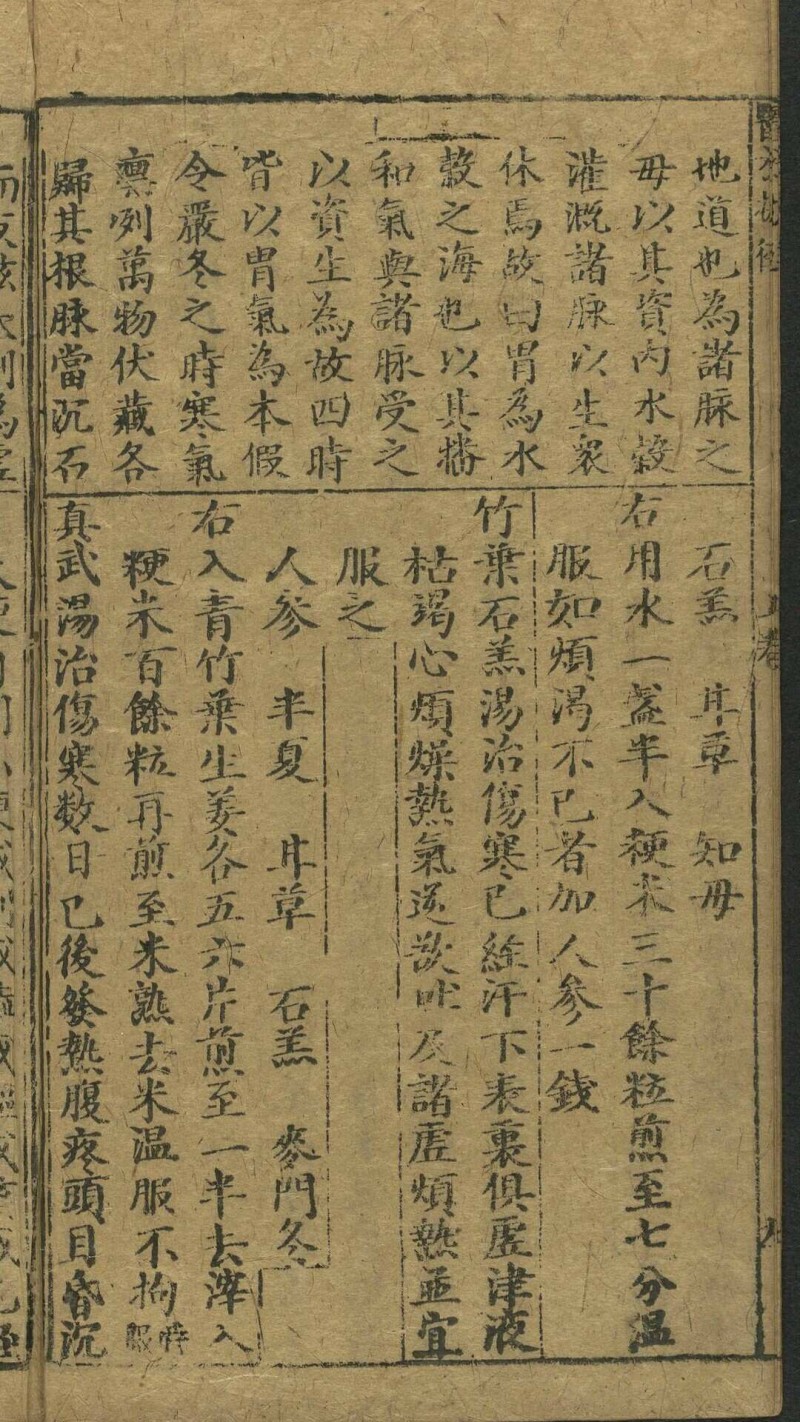 地道也為諸脉之
毋以其資內水穀
灌溉諸脉以生衆
休焉故曰胃為水
穀之海也以其播
和氣與諸脉受之
以資生為故四時
皆以胃氣為本假
令嚴冬之時寒氣
凜冽萬物伏藏各
歸其根脉當沉石
石羔 甘草 知毋
右用水一盞半入粳米三十餘粒煎至七分温
服如煩渴不已者加人參一錢
竹葉石羔湯治傷寒已經汗下表裏俱虛津液
枯渴心煩燥熱氣逆欲吐及諸虛煩熱並宜
服之
人參 半夏 甘草 石羔 麥門冬
右入青竹葉生姜各五六片煎至一半去滓入
粳米百餘粒再煎至米熟去米温服不拘時服
真武湯治傷寒数日已後發熱腹疼頭目昏沉
上卷
九